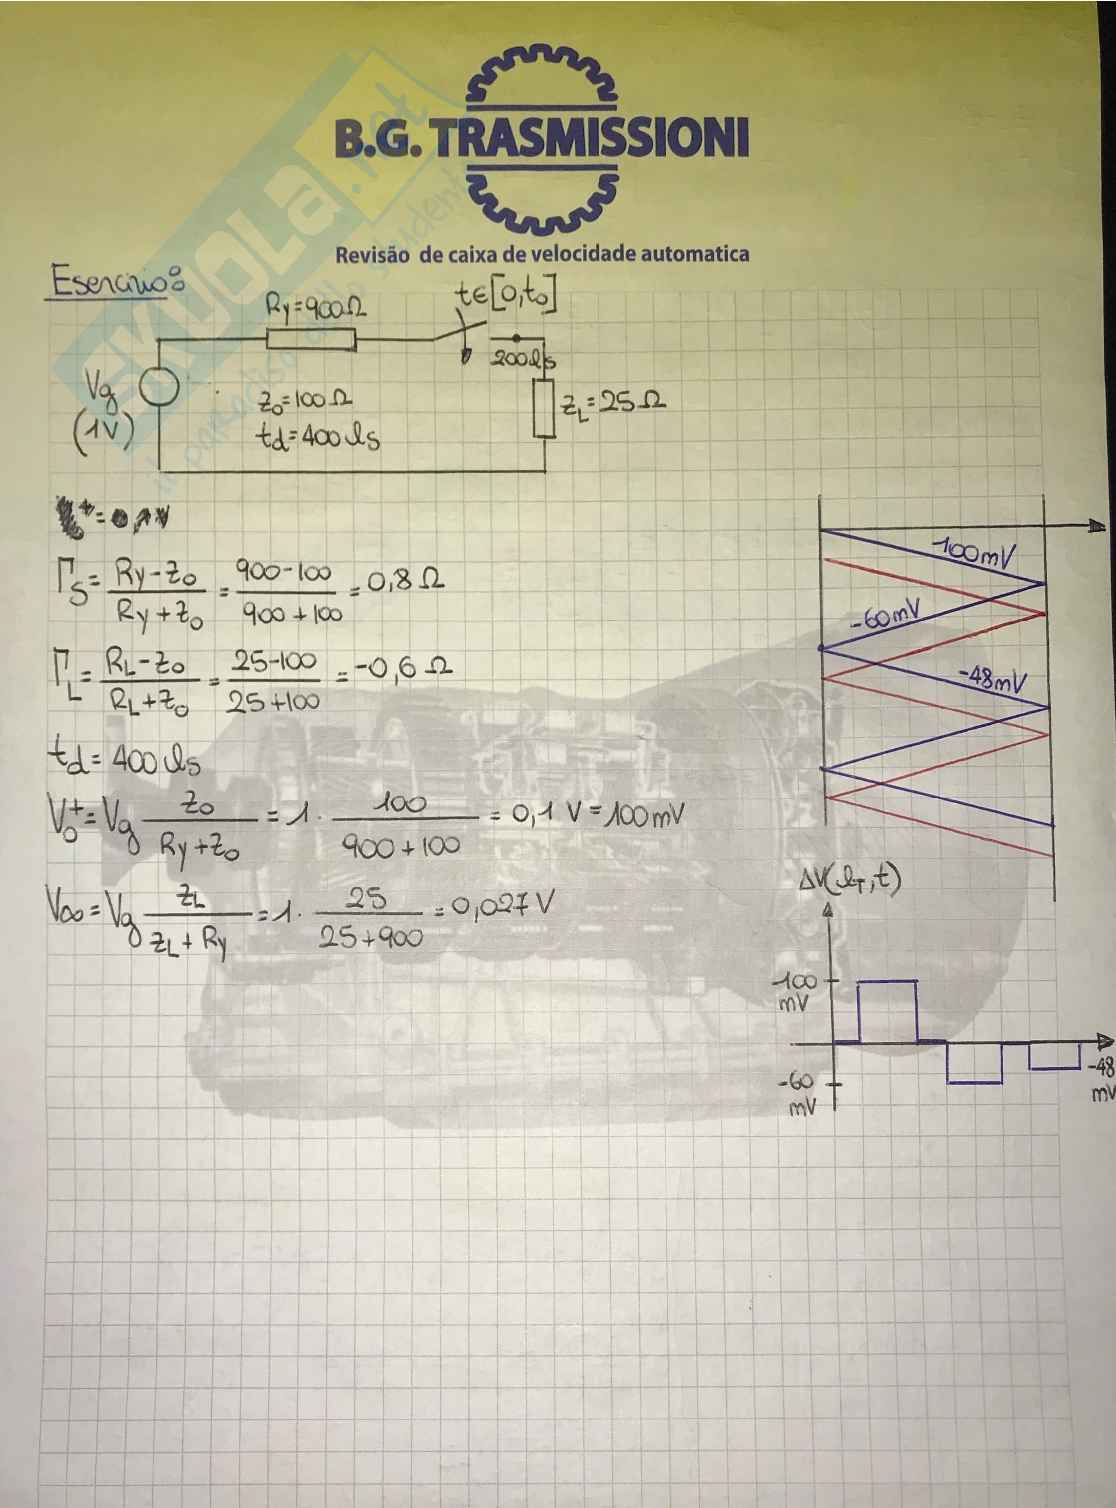 B.G. TRASMISSIONI
Revisão de caixa de velocidade automatica
SKUOLA.net
Esercizio:
Ry=900Ω
t∈[0,t₀]
200 ls
Vg
(1V)
Z₀=100Ω
td=400 ls
ZL=25Ω
ΓS = Ry-Z₀ / Ry+Z₀ = 900-100 / 900+100 = 0,8 Ω
ΓL = RL-Z₀ / RL+Z₀ = 25-100 / 25+100 = -0,6 Ω
td=400 ls
V₀⁺=Vg Z₀ / Ry+Z₀ = 1· 100 / 900+100 = 0,1 V=100mV
V∞=Vg ZL / ZL+Ry = 1· 25 / 25+900 = 0,027 V
100mV
-60mV
-48mV
ΔV(lT,t)
100
mV
-60
mV
-48
mV